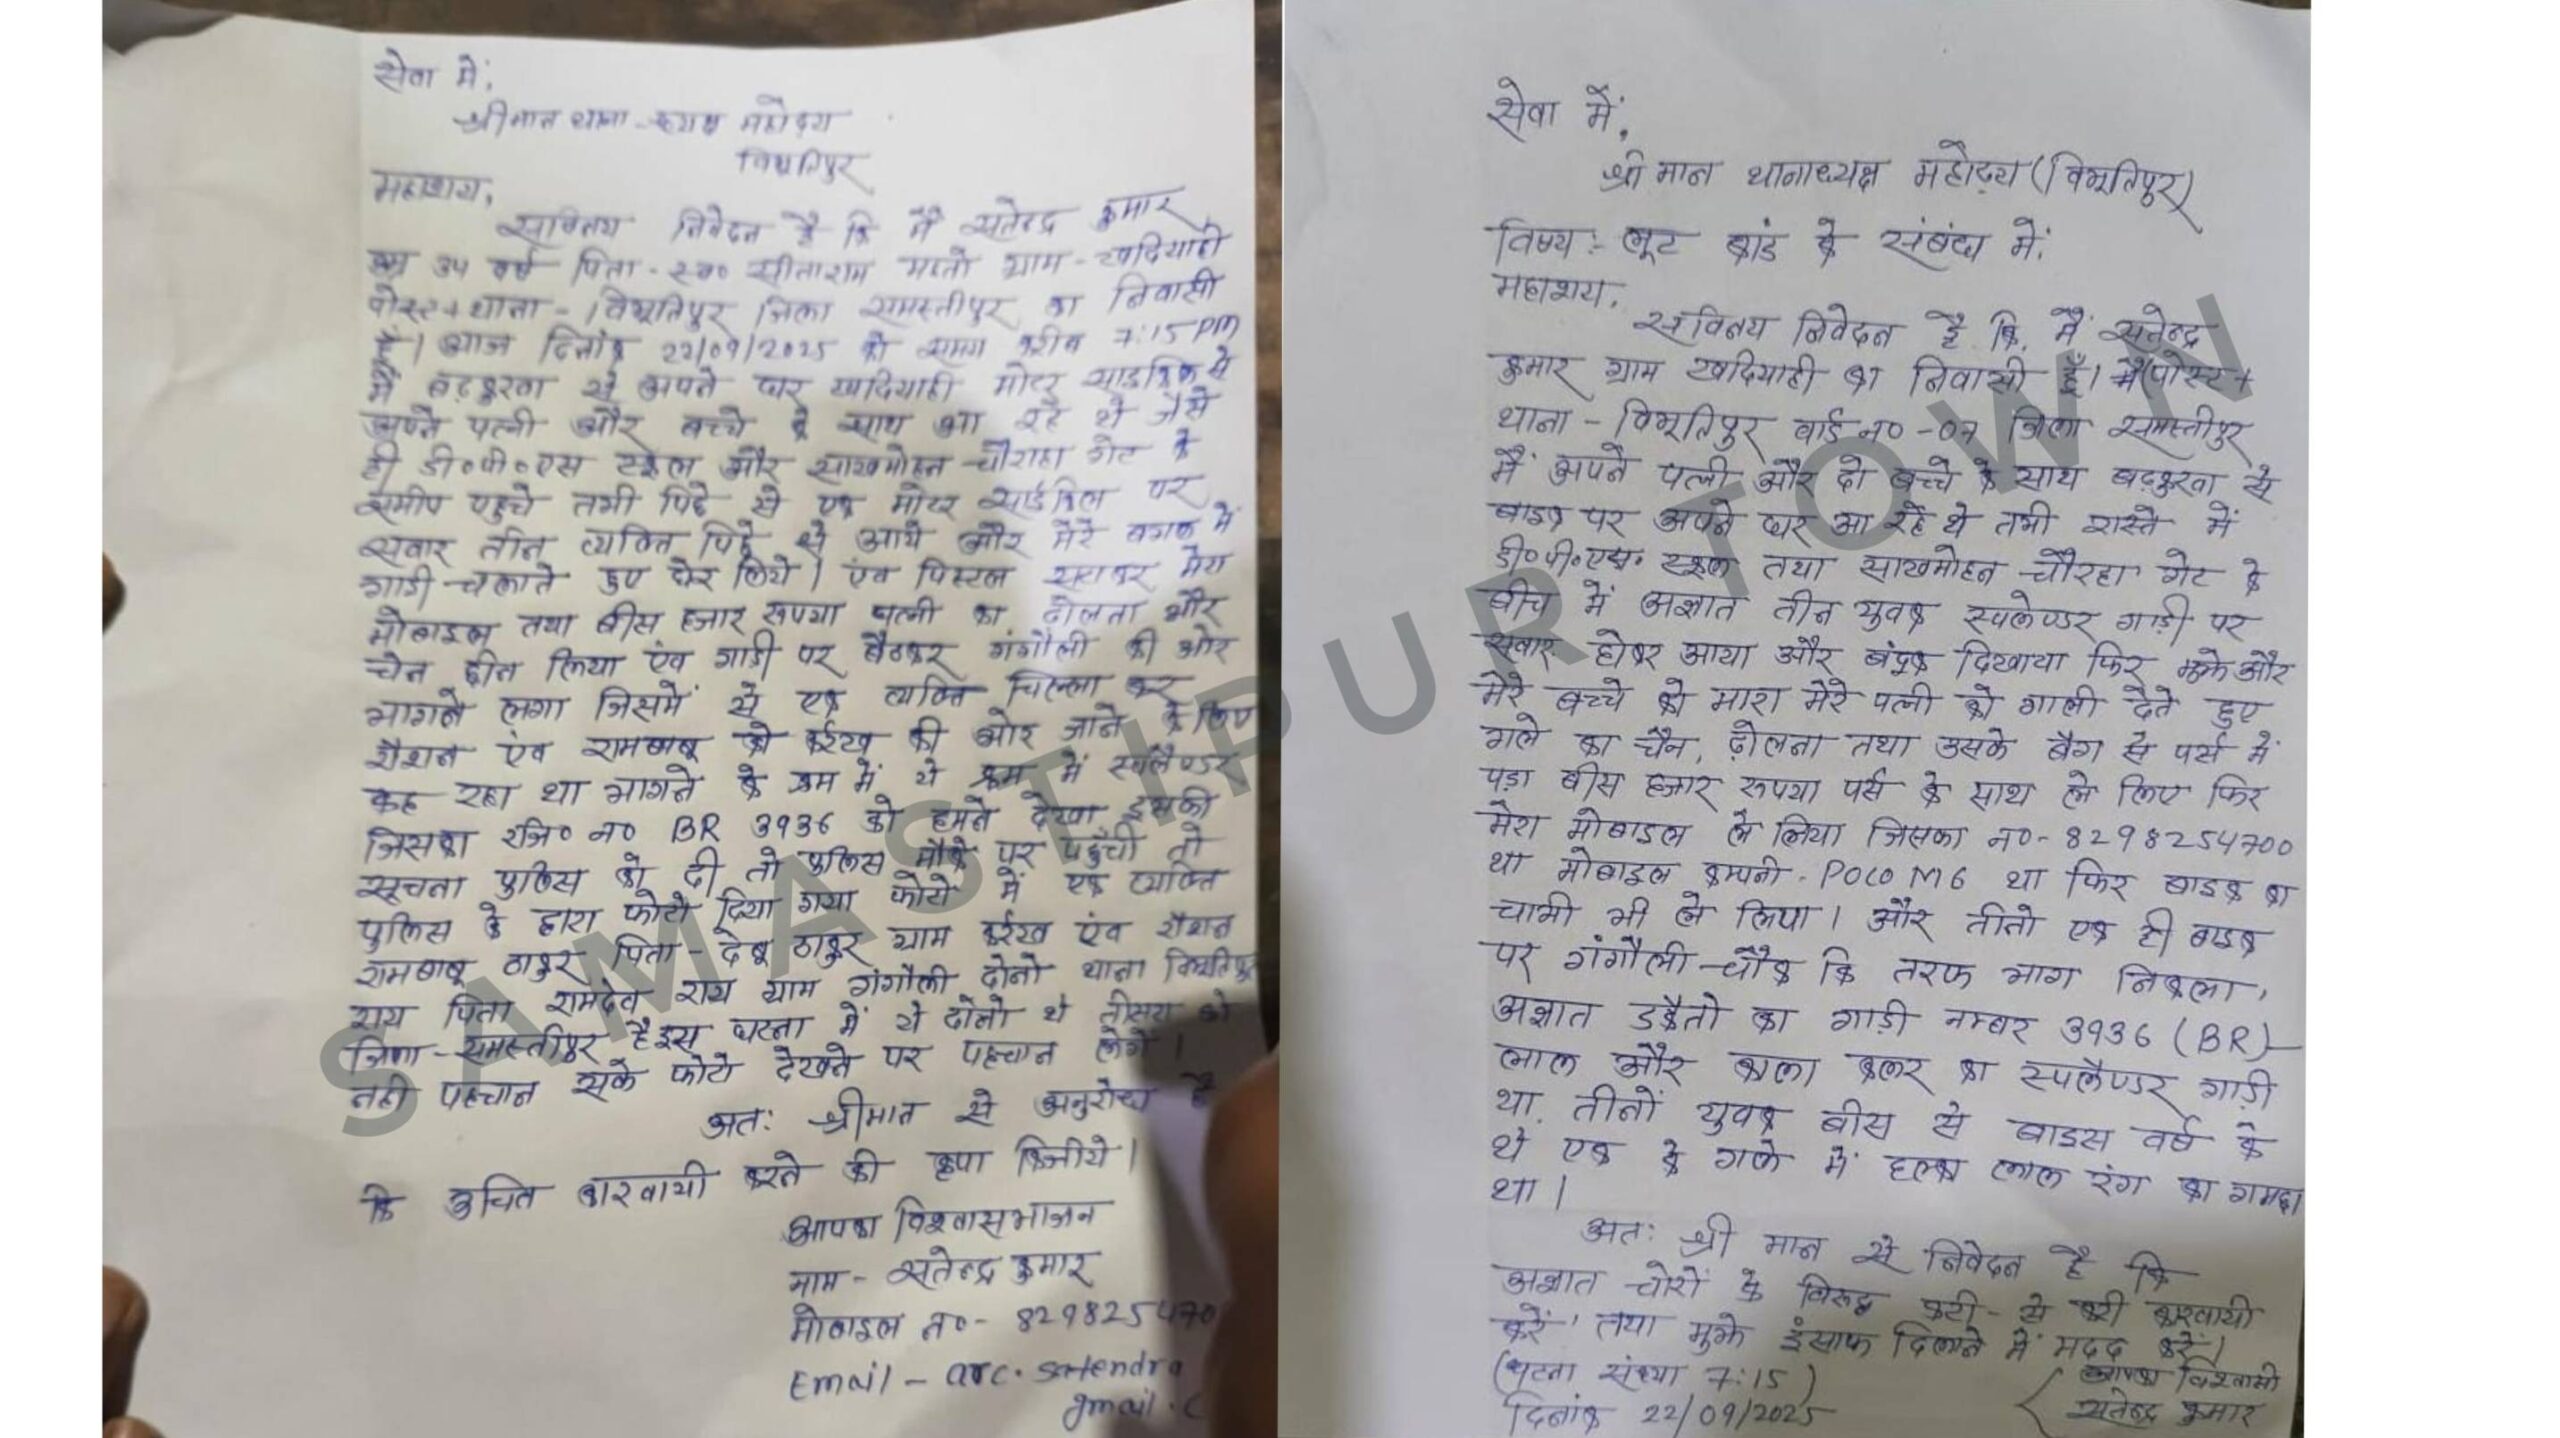 सेवा में,
श्रीमान थाना महोदय
विभूतिपुर
महाशय,
सविनय निवेदन है कि मैं सतेन्द्र कुमार
उम्र 34 वर्ष पिता - स्व० सीताराम महतो ग्राम - खदियाही
पोस्ट + थाना - विभूतिपुर जिला समस्तीपुर का निवासी
हूँ। आज दिनांक 22/09/2025 को समय करीब 7:15 PM
में बढ़कुरवा से अपने घर खदियाही मोटर साइकिल से
अपने पत्नी और बच्चे के साथ आ रहे थे जैसे
ही डी०पी०एस स्कूल और साखमोहन चौराहा गेट के
समीप पहुचे तभी पिछे से एक मोटर साईकिल पर
सवार तीन व्यक्ति पिछे से आये और मेरे बगल में
गाडी चलाते हुए घेर लिये। एंव पिस्टल सटाकर मेरा
मोबाइल तथा बीस हजार रूपया पत्नी का ढोलना और
चेन छीन लिया एंव गाडी पर बैठकर गंगौली की ओर
भागने लगा जिसमें से एक व्यक्ति चिल्ला कर
रौशन एंव रामबाबू को कईख की ओर जाने के लिए
कह रहा था भागने के क्रम में ये क्रम में स्पलैण्डर
जिसका रजि० न० BR 3936 को हमने देखा इसकी
सूचना पुलिस को दी तो पुलिस मौके पर पहुँची तो
पुलिस के द्वारा फोटो दिया गया फोटो में एक व्यक्ति
रामबाबू ठाकुर पिता - देबू ठाकुर ग्राम कईख एंव रौशन
राय पिता रामदेव राय ग्राम गंगौली दोनो थाना विभूतिपुर
जिला - समस्तीपुर है इस घटना में ये दोनो थे तीसरा को
नही पहचान सके फोटो देखने पर पहचान लेगें।
अत: श्रीमान से अनुरोध है
कि उचित कारवायी करने की कृपा किजीये।
आपका विश्वासभाजन
नाम - सतेन्द्र कुमार
मोबाइल न० - 829825470
Email - arc.satendra
gmail.c
सेवा में,
श्री मान थानाध्यक्ष महोदय (विभूतिपुर)
विषय:- लूट कांड के संबंध में.
महाशय,
सविनय निवेदन है कि, मैं सतेन्द्र
कुमार ग्राम खदियाही का निवासी हूँ। मैं (पोस्ट +
थाना - विभूतिपुर वार्ड न० -07 जिला समस्तीपुर
मैं अपने पत्नी और दो बच्चे के साथ बढ़कुरवा से
बाइक पर अपने घर आ रहे थे तभी रास्ते में
डी०पी०एस० स्कूल तथा साखमोहन चौरहा गेट के
बीच में अज्ञात तीन युवक स्पलेण्डर गाड़ी पर
सवार होकर आया और बंदूक दिखाया फिर मुझे और
मेरे बच्चे को मारा मेरे पत्नी को गाली देते हुए
गले का चैन, ढ़ोलना तथा उसके बैग से पर्स में
पड़ा बीस हजार रूपया पर्स के साथ ले लिए फिर
मेरा मोबाइल ले लिया जिसका न० - 8298254700
था मोबाइल कम्पनी - POCO M6 था फिर बाइक का
चाभी भी ले लिया। और तीनो एक ही बाइक
पर गंगौली चौक कि तरफ भाग निकला,
अज्ञात डकैतो का गाड़ी नम्बर 3936 (BR)-
लाल और काला कलर का स्पलैण्डर गाड़ी
था. तीनों युवक बीस से बाइस वर्ष के
थे एक के गले में हल्का लाल रंग का गमछा
था।
अत: श्री मान से निवेदन है कि
अज्ञात चोरों के विरूद्ध कड़ी - से कड़ी कारवायी
करें, तथा मुझे इंसाफ दिलाने में मदद करें।
(घटना संख्या 7:15)
आपका विश्वासी
दिनांक 22/09/2025
सतेन्द्र कुमार
SAMASTIPUR TOWN